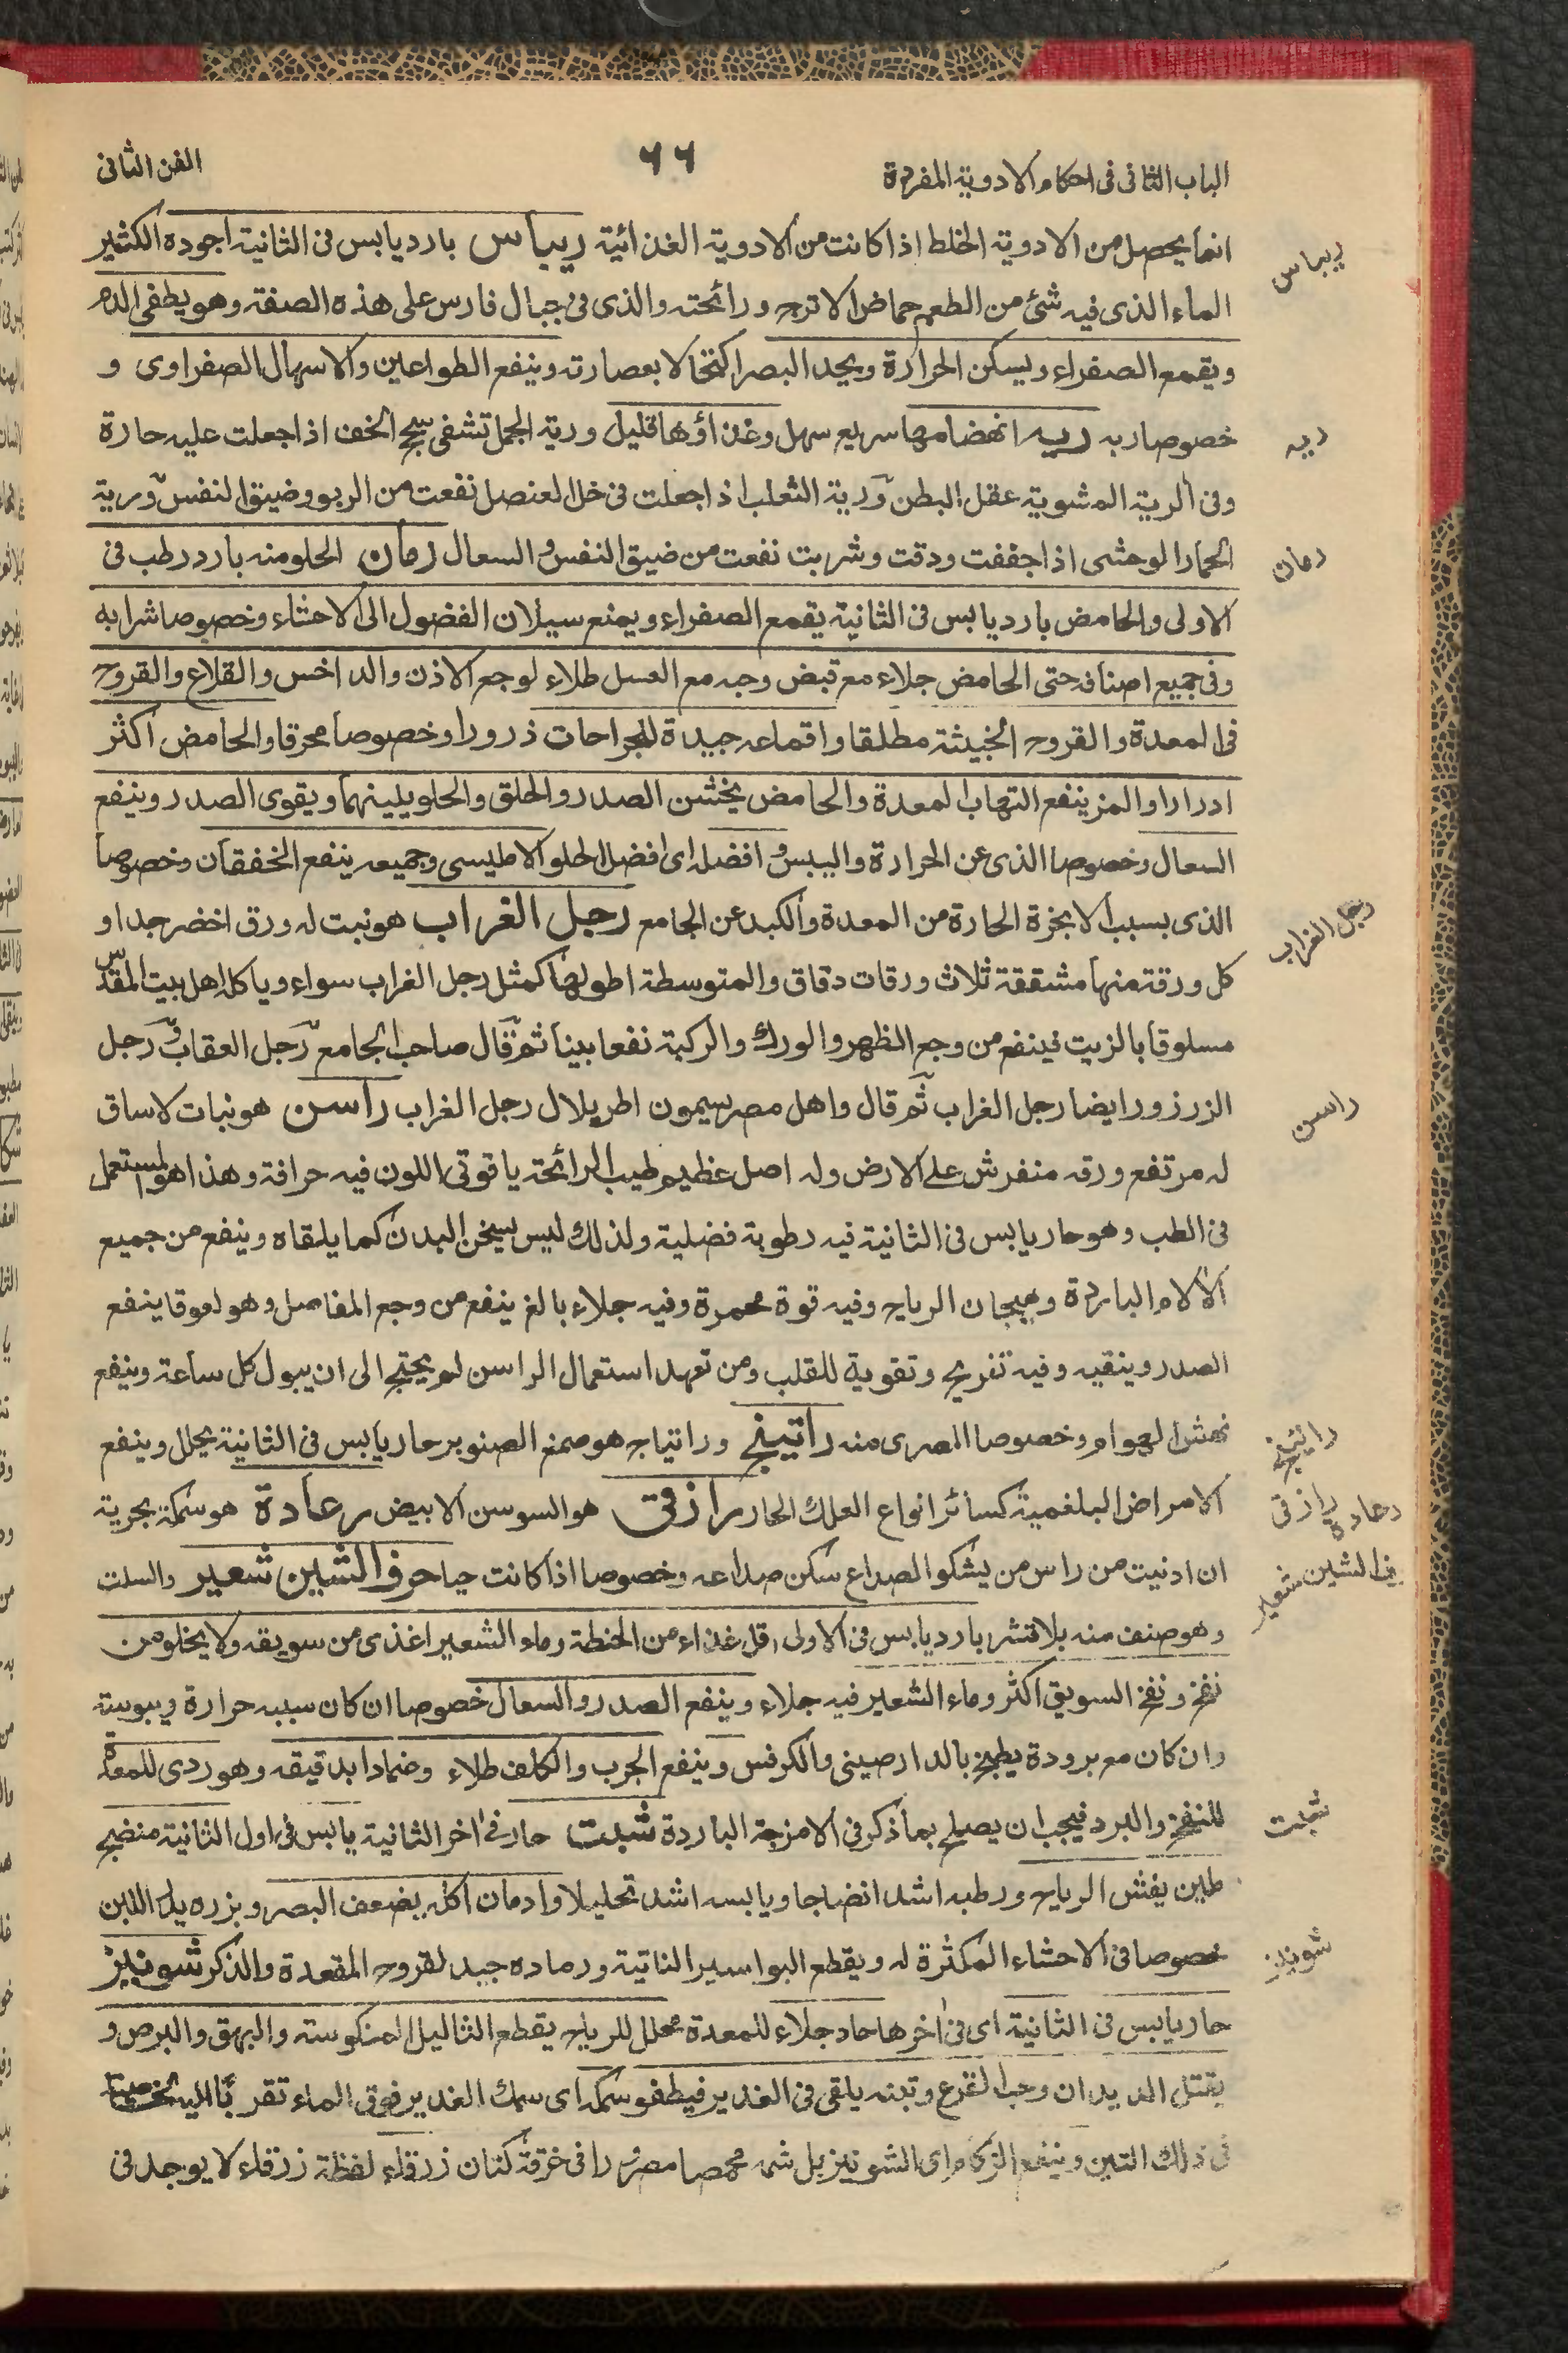 الباب الثانى فى احكام الادوية المفردة
٦٦
الفن الثانى
انما يحصل من الادوية الخلط اذا كانت من الادوية الغذائية ريباس بارد يابس فى الثانية اجوده الكثير
الماء الذى فيه شئ من الطعم حماض الاترج ورائحته والذى فى جبال فارس على هذه الصفة وهو يطفى الدم
ويقمع الصفراء ويسكن الحرارة ويحد البصر اكتحالا بعصارته وينفع الطواعين والاسهال الصفراوى و
خصوصا ربه ريه انهضامها سريع سهل وغذاؤها قليل ورية الجمل تشفى سحج الخف اذا جعلت عليه حارة
وفى الرية المشوية عقل البطن ورية الثعلب اذا جعلت فى خل العنصل نفعت من الربو وضيق النفس ورية
الحمار الوحشى اذا جففت ودقت وشربت نفعت من ضيق النفس والسعال رمان الحلو منه بارد رطب فى
الاولى والحامض بارد يابس فى الثانية يقمع الصفراء ويمنع سيلان الفضول الى الاحشاء وخصوصا شرابه
وفى جميع اصنافه حتى الحامض جلاء مع قبض وحبه مع العسل طلاء لوجع الاذن والداخس والقلاع والقروح
فى المعدة والقروح الخبيثة مطلقا واقماعه جيدة للجراحات ذرورا وخصوصا محرقا والحامض اكثر
ادرارا والمز ينفع التهاب المعدة والحامض يخشن الصدر والحلق والحلو يلينهما ويقوى الصدر وينفع
السعال وخصوصا الذى عن الحرارة واليبس و افضله اى افضل الحلو الامليسى وجميعه ينفع الخفقان وخصوصا
الذى بسبب الابخرة الحارة من المعدة والكبد عن الجامع رجل الغراب هو نبت له ورق اخضر جدا و
كل ورقة منها مشققة ثلاث ورقات دقاق والمتوسطة اطولها كمثل رجل الغراب سواء وياكله اهل بيت المقدس
مسلوقا بالزيت فينفع من وجع الظهر والورك والركبة نفعا بينا ثم قال صاحب الجامع رجل العقاب و رجل
الزرزور ايضا رجل الغراب ثم قال واهل مصر يسمون اطريلال رجل الغراب راسن هو نبات لا ساق
له مرتفع ورقه منفرش على الارض وله اصل عظيم طيب الرائحة ياقوتى اللون فيه حرافة وهذا هو المستعمل
فى الطب وهو حار يابس فى الثانية فيه رطوبة فضلية ولذلك ليس يسخن البدن كما يلقاه وينفع من جميع
الآلام الباردة وهيجان الرياح وفيه قوة محمرة وفيه جلاء بالغ ينفع من وجع المفاصل وهو لعوقا ينفع
الصدر وينقيه وفيه تفريح وتقوية للقلب ومن تعهد استعمال الراسن لم يحتج الى ان يبول كل ساعة وينفع
نهش الهوام وخصوصا المصرى منه راتينج وراتياج هو صمغ الصنوبر حار يابس فى الثانية يحلل وينفع
الامراض البلغمية كسائر انواع العلك الحار رازقى هو السوسن الابيض رعادة هو سمكة بحرية
ان ادنيت من راس من يشكو الصداع سكن صداعه وخصوصا اذا كانت حيا حرف الشين شعير والسلت
وهو صنف منه بلا قشر بارد يابس فى الاولى اقل غذاء من الحنطة وماء الشعير اغذى من سويقه ولا يخلو من
نفخ ونفخ السويق اكثر وماء الشعير فيه جلاء وينفع الصدر والسعال خصوصا ان كان سببه حرارة ويبوسة
وان كان مع برودة يطبخ بالدارصينى والكرفس وينفع الجرب والكلف طلاء وضمادا بدقيقه وهو ردى للمعدة
للنفخ والبرد فيجب ان يصلح بما ذكر فى الامزجة الباردة شبت حار فى اخر الثانية يابس فى اول الثانية منضج
ملين يفش الرياح ورطبه اشد انضاجا ويابسه اشد تحليلا وادمان اكله يضعف البصر وبزره يدر اللبن
خصوصا فى الاحشاء المكثرة له ويقطع البواسير الناتية ورماده جيد لقروح المقعدة والذكر شونيز
حار يابس فى الثانية اى فى اخرها حاد جلاء للمعدة محلل للرياح يقطع الثاليل المنكوسة والبهق والبرص و
يقتل الديدان وحب القرع وتبنه يلقى فى الغدير فيطفو سمكه اى سمك الغدير فوق الماء تقربا اليه
فى ذلك التبن وينفع الزكام اى الشونيز بل شمه محمصا مصرورا فى خرقة كتان زرقاء لفظة زرقاء لا يوجد فى
ريباس
ريه
رمان
رجل الغراب
راسن
راتينج
رازقى
رعاده
الشين شعير
شبت
شونيز